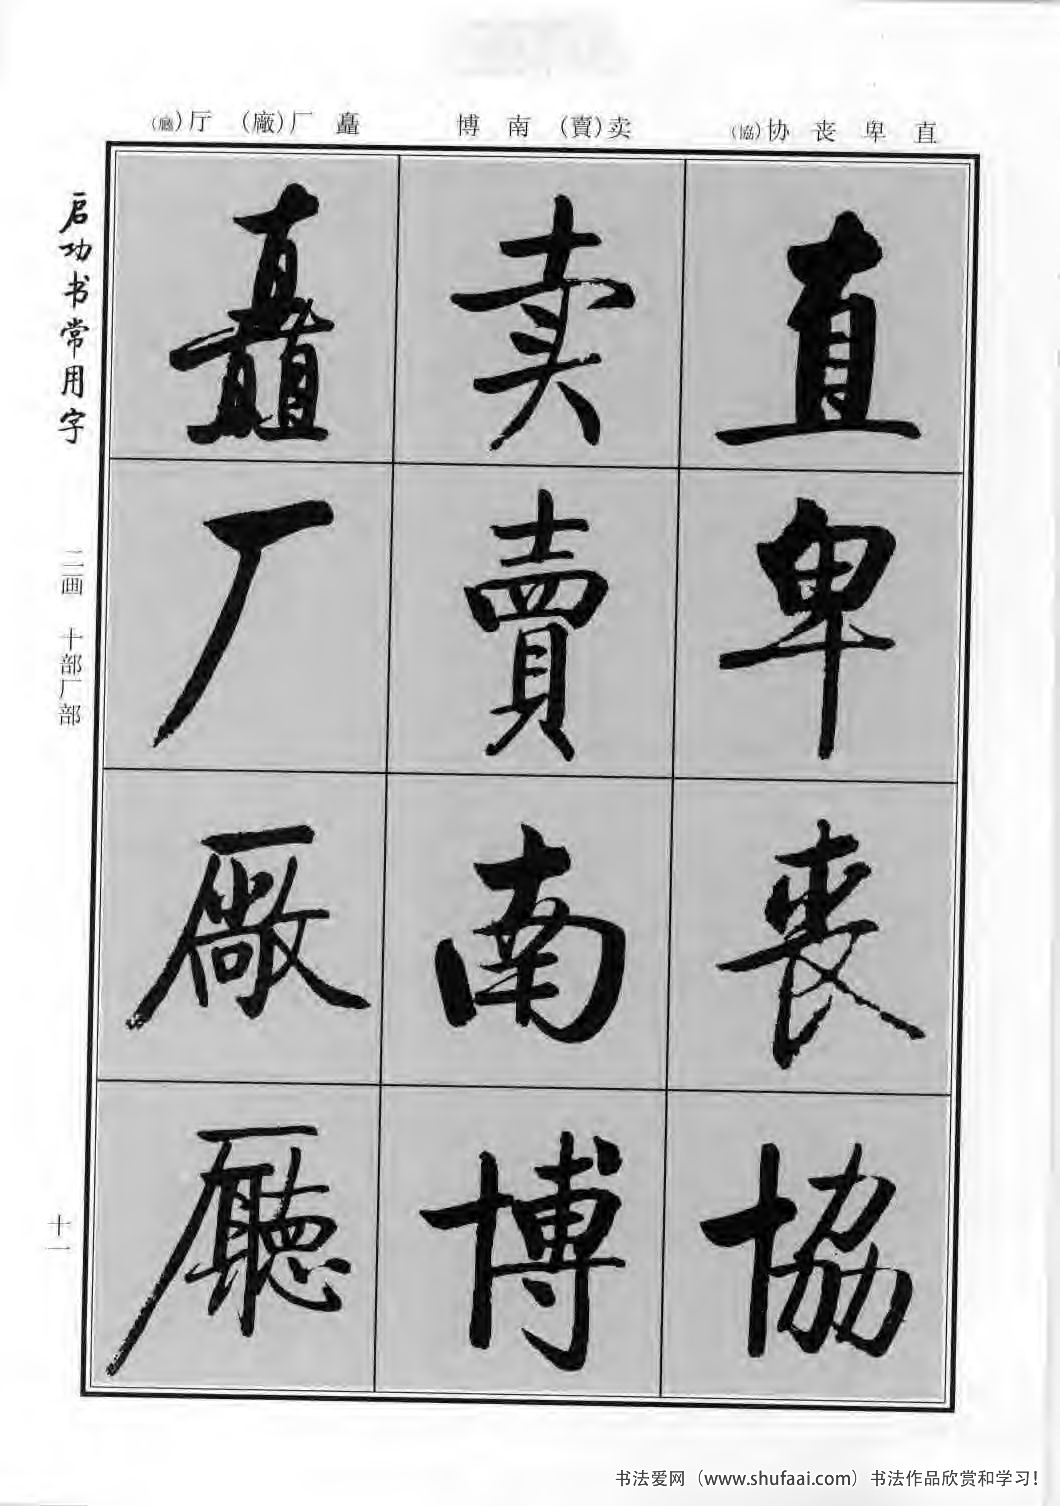 直 卑 丧 协(協) 卖(賣) 南 博 矗 厂(廠) 厅(廳)
直卑丧協
卖賣南博
矗厂廠廳
启功书常用字
二画 十部厂部
十一
书法爱网（www.shufaai.com）书法作品欣赏和学习！